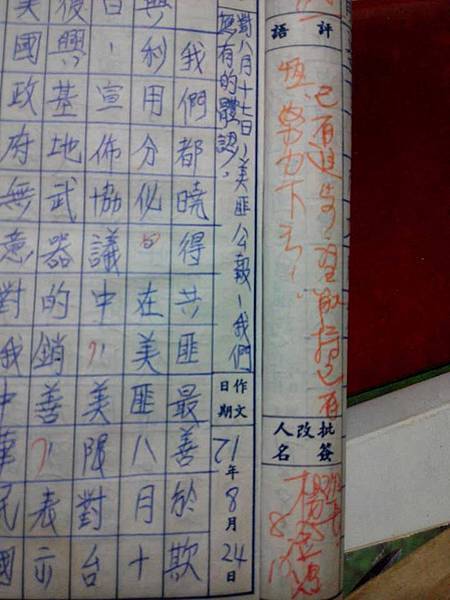 評語
已有進步,望能持之有
恆,努力下去!
批改人簽名
對八月十七日、美匪公報、我們
應有的體認。
作文日期
71年8月24日
我們都曉得共匪最善於欺
利用分化在美匪八月十
日,宣佈協議中,美限對台
復興基地武器的銷善,表示
美國政府無意對我中事民國